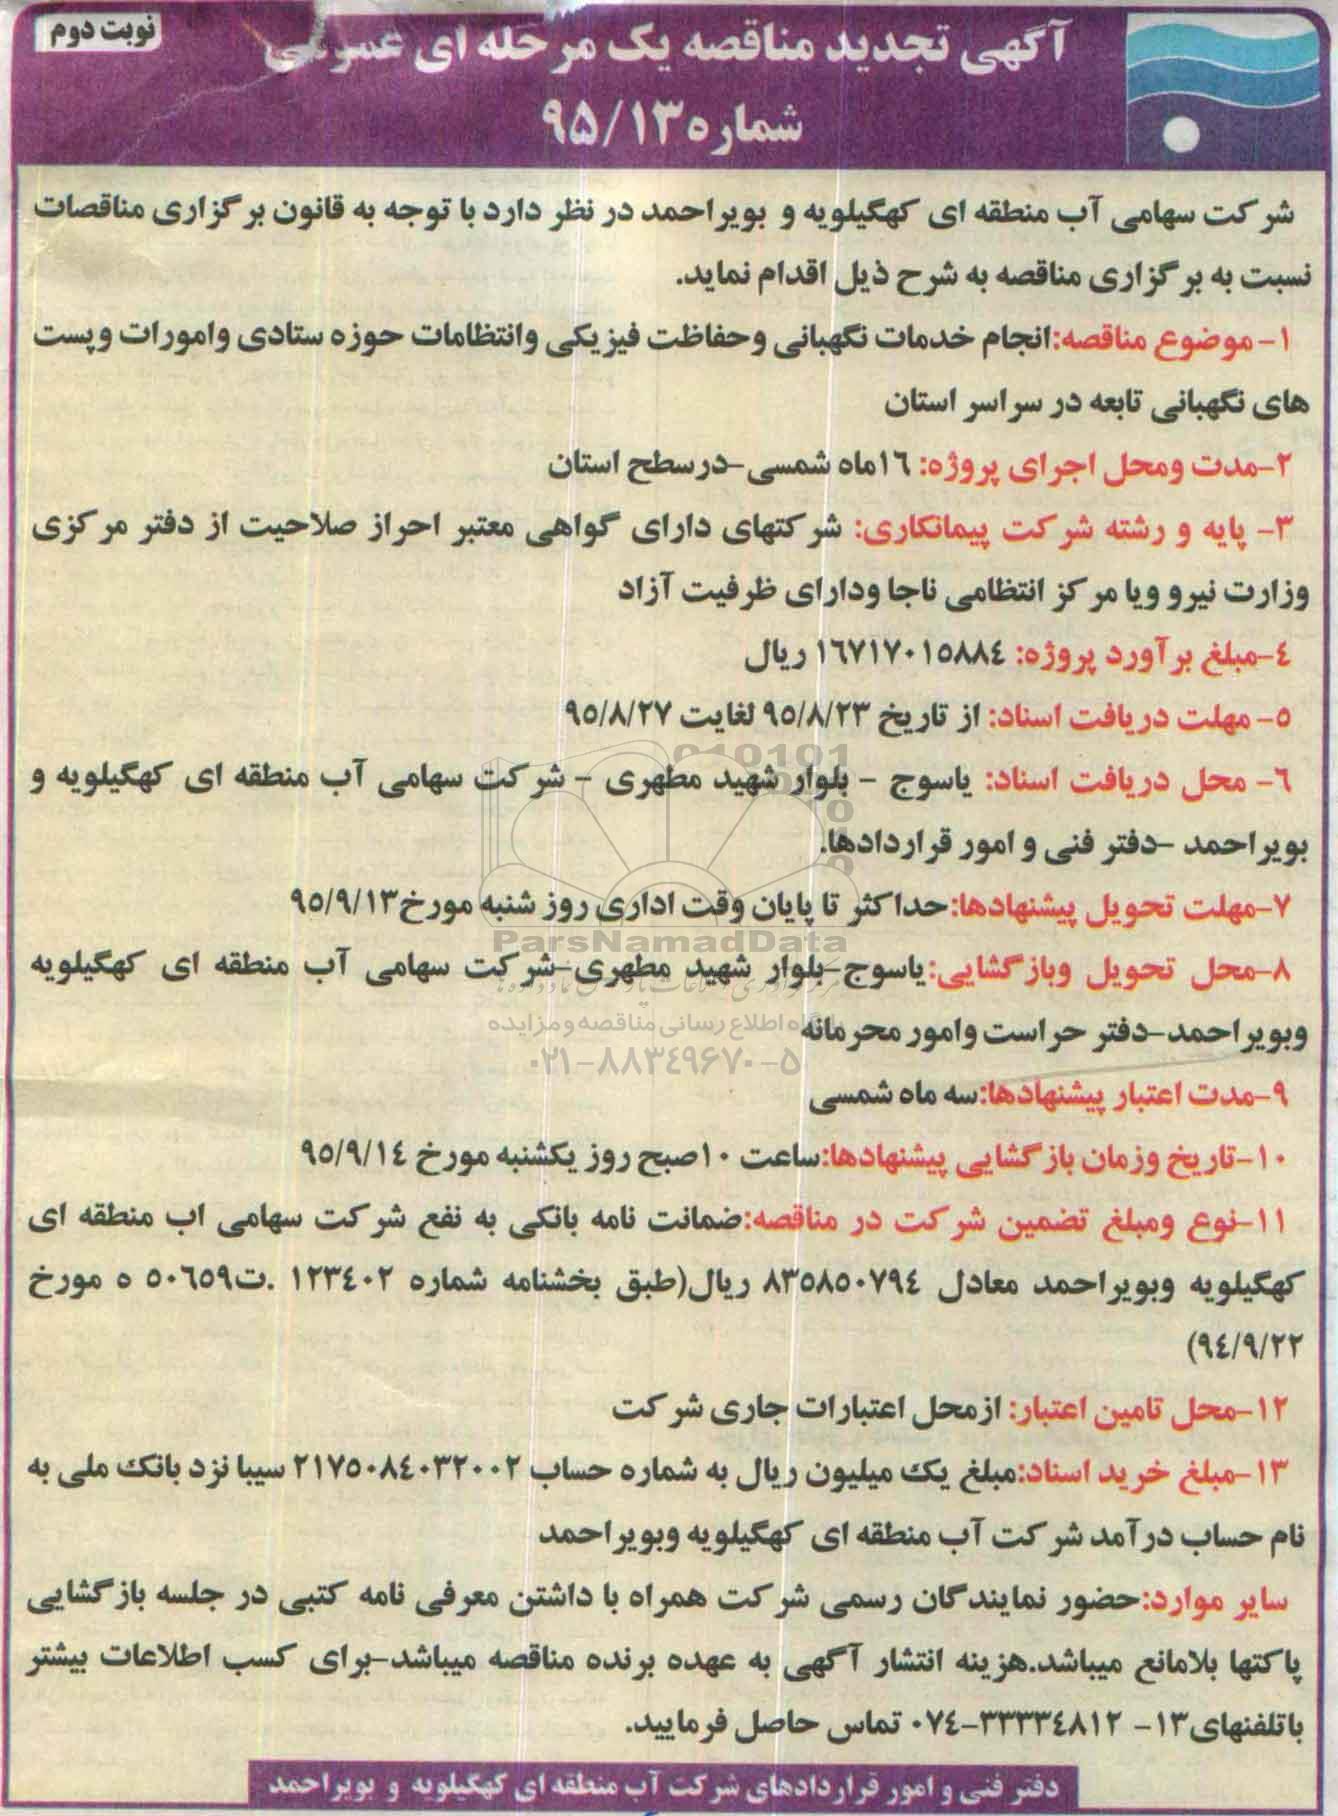 نوبت دوم
آگهی تجدید مناقصه یک مرحله ای عمومی
شماره ۹۵/۱۳
شرکت سهامی آب منطقه ای کهگیلویه و بویراحمد در نظر دارد با توجه به قانون برگزاری مناقصات
نسبت به برگزاری مناقصه به شرح ذیل اقدام نماید.
۱- موضوع مناقصه:انجام خدمات نگهبانی وحفاظت فیزیکی وانتظامات حوزه ستادی وامورات وپست
های نگهبانی تابعه در سراسر استان
۲-مدت ومحل اجرای پروژه: ۱۶ماه شمسی-درسطح استان
۳- پایه و رشته شرکت پیمانکاری: شرکتهای دارای گواهی معتبر احراز صلاحیت از دفتر مرکزی
وزارت نیرو ویا مرکز انتظامی ناجا ودارای ظرفیت آزاد
۴-مبلغ برآورد پروژه: ۱۶۷۱۷۰۱۵۸۸۴ ریال
۵- مهلت دریافت اسناد: از تاریخ ۹۵/۸/۲۳ لغایت ۹۵/۸/۲۷
۶- محل دریافت اسناد: یاسوج - بلوار شهید مطهری - شرکت سهامی آب منطقه ای کهگیلویه و
بویراحمد -دفتر فنی و امور قراردادها.
۷-مهلت تحویل پیشنهادها:حداکثر تا پایان وقت اداری روز شنبه مورخ۹۵/۹/۱۳
ParsNamadData
۸-محل تحویل وبازگشایی:یاسوج-بلوار شهید مطهری-شرکت سهامی آب منطقه ای کهگیلویه
وبویراحمد-دفتر حراست وامور محرمانه
پایگاه اطلاع رسانی مناقصه و مزایده
۰۲۱-۸۸۳۴۹۶۷۰-۵
۹-مدت اعتبار پیشنهادها:سه ماه شمسی
۱۰-تاریخ وزمان بازگشایی پیشنهادها:ساعت ۱۰صبح روز یکشنبه مورخ ۹۵/۹/۱۴
۱۱-نوع ومبلغ تضمین شرکت در مناقصه:ضمانت نامه بانکی به نفع شرکت سهامی اب منطقه ای
کهگیلویه وبویراحمد معادل ۸۳۵۸۵۰۷۹۴ ریال(طبق بخشنامه شماره ۱۲۳۴۰۲ .ت۵۰۶۵۹ ه مورخ
۹۴/۹/۲۲)
۱۲-محل تامین اعتبار: ازمحل اعتبارات جاری شرکت
۱۳-مبلغ خرید اسناد:مبلغ یک میلیون ریال به شماره حساب ۲۱۷۵۰۸۴۰۳۲۰۰۲ سیبا نزد بانک ملی به
نام حساب درآمد شرکت آب منطقه ای کهگیلویه وبویراحمد
سایر موارد:حضور نمایندگان رسمی شرکت همراه با داشتن معرفی نامه کتبی در جلسه بازگشایی
پاکتها بلامانع میباشد.هزینه انتشار آگهی به عهده برنده مناقصه میباشد-برای کسب اطلاعات بیشتر
باتلفنهای۱۳- ۳۳۳۳۴۸۱۲-۰۷۴ تماس حاصل فرمایید.
دفتر فنی و امور قراردادهای شرکت آب منطقه ای کهگیلویه و بویراحمد